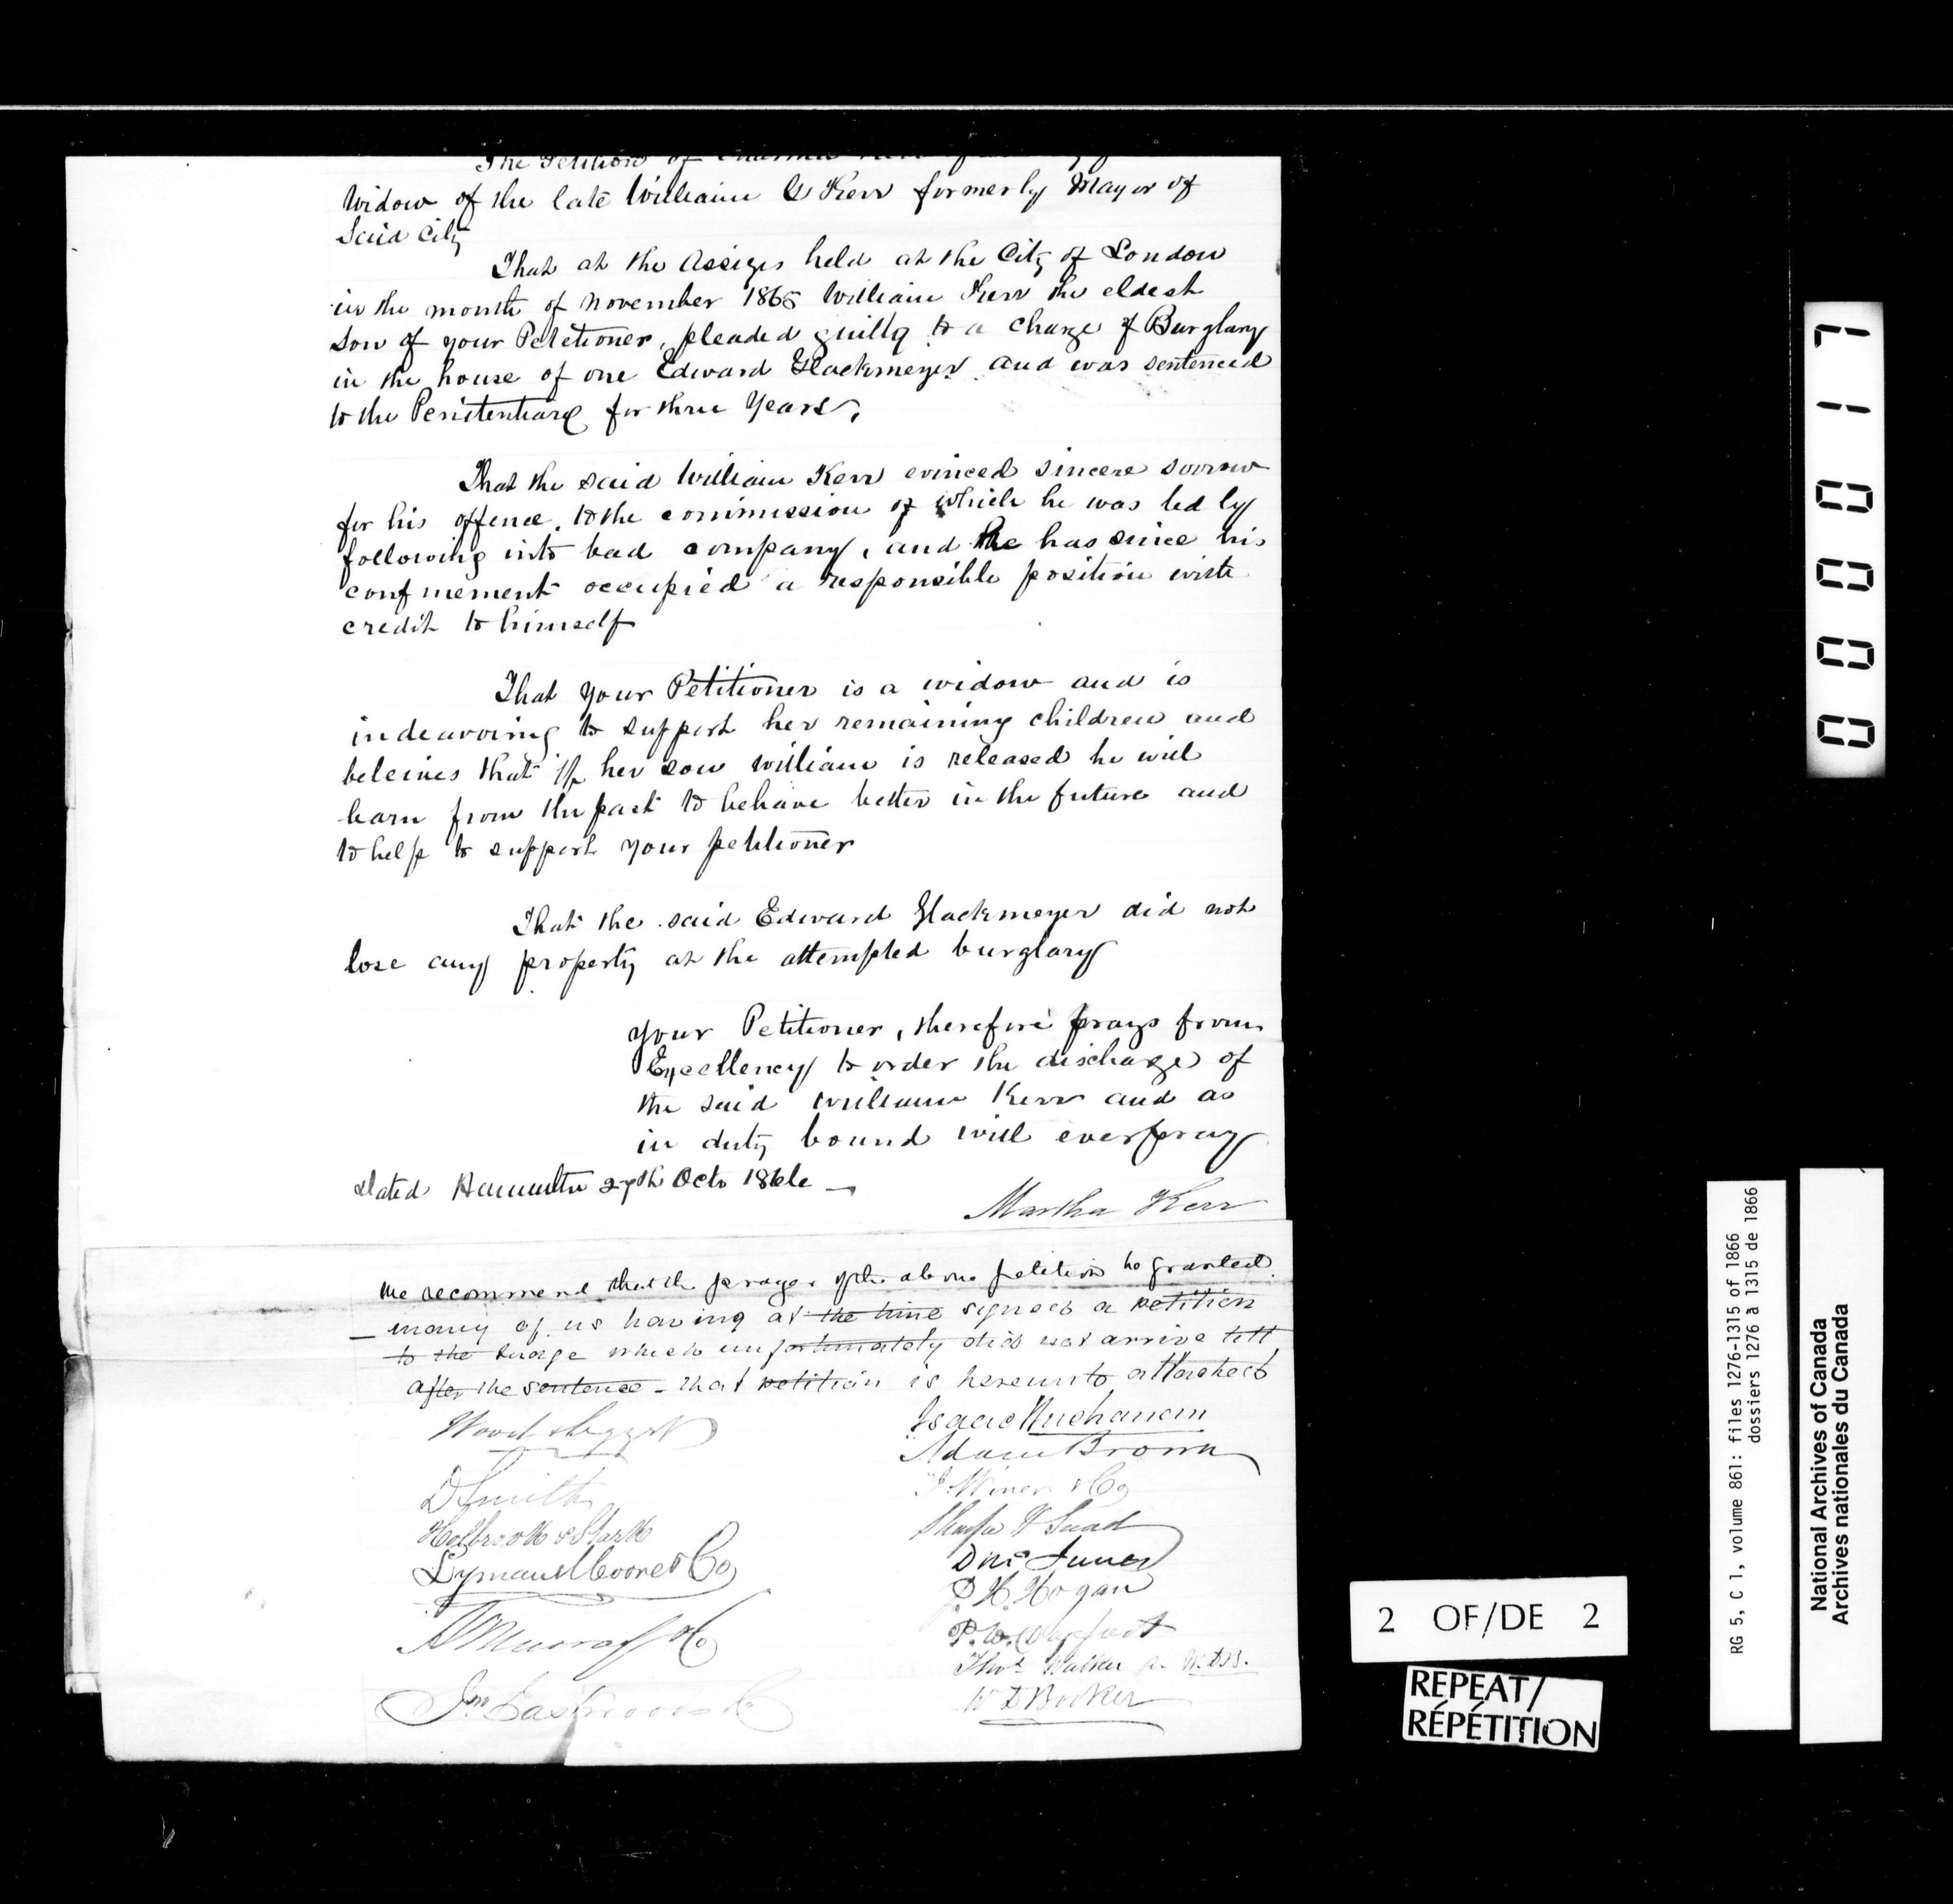 The Petition of Martha Kerr
Widow of the late William G Kerr formerly Mayor of
Said City
That at the Assizes held at the City of London
in the month of November 1865 William Kerr the eldest
son of your Petetioner, pleaded guilty to a charge of Burglary
in the house of one Edward Glackmeyer and was sentenced
to the Penitentiary for three Years,
That the said William Kerr evinced sincere sorrow
for his offence, to the commission of which he was led by
following into bad company, and he has since his
confinement occupied a responsible position with
credit to himself
That your Petitioner is a widow and is
indeavoring to support her remaining children and
beleives that if her son William is released he will
learn from the past to behave better in the future and
to help to support your petitioner
That the said Edward Glackmeyer did not
lose any property at the attempted burglary
Your Petitioner, therefore prays from
Excellency to order the discharge of
the said William Kerr and as
in duty bound will ever pray
Dated Hamilton 27th Octo 1866
Martha Kerr
We recommend that the prayer of the above petition be granted
— many of us having at the time signed a petition
to the Judge which unfortunately did not arrive till
after the sentence - that petition is hereunto attached
Wood & Leggat
Isaac Buchanan
Adam Brown
D Smith
J. Winer & Co
Holbrook & Stark
Lyman Moore & Co
D McInnes
J. H. Hogan
A Murray & Co
P. W.
Thos. Walker
W D Booker
Jno Eastwood & Co
0 0 0 0 1 7
2 OF/DE 2
REPEAT/
RÉPÉTITION
RG 5, C 1, volume 861: files 1276-1315 of 1866
dossiers 1276 à 1315 de 1866
National Archives of Canada
Archives nationales du Canada